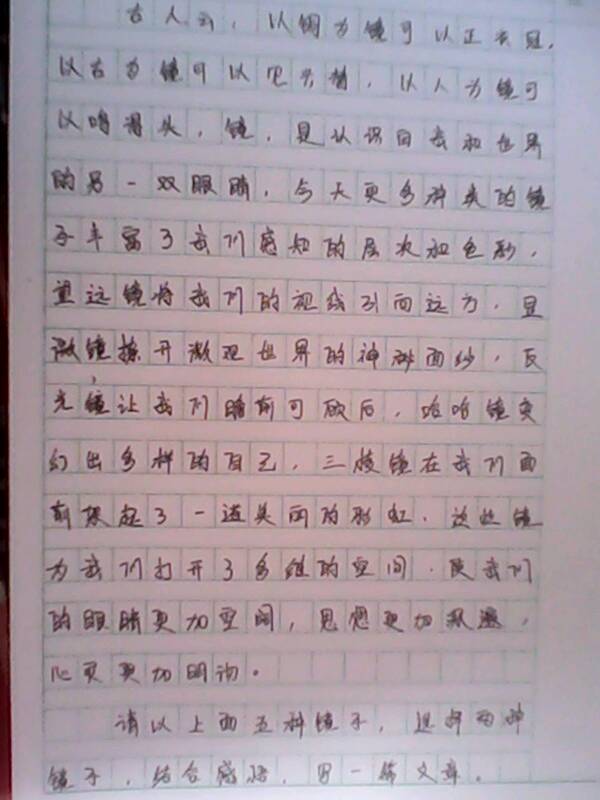 古人云，以铜为镜可以正衣冠，
以古为镜可以见兴替，以人为镜可
以明得失，镜，是认识自我和世界
的另一双眼睛，今天更多种类的镜
子丰富了我们感知的层次和色彩，
望远镜将我们的视线引向远方，显
微镜撩开微观世界的神秘面纱，反
光镜让我们瞻前可顾后，哈哈镜变
幻出多样的自己，三棱镜在我们面
前架起了一道美丽的彩虹，这些镜
为我们打开了多维的空间，使我们
的眼睛更加空阔，思想更加
心灵更加明澈。
请以上面五种镜子，选择两种
镜子，结合感悟，写一篇文章。